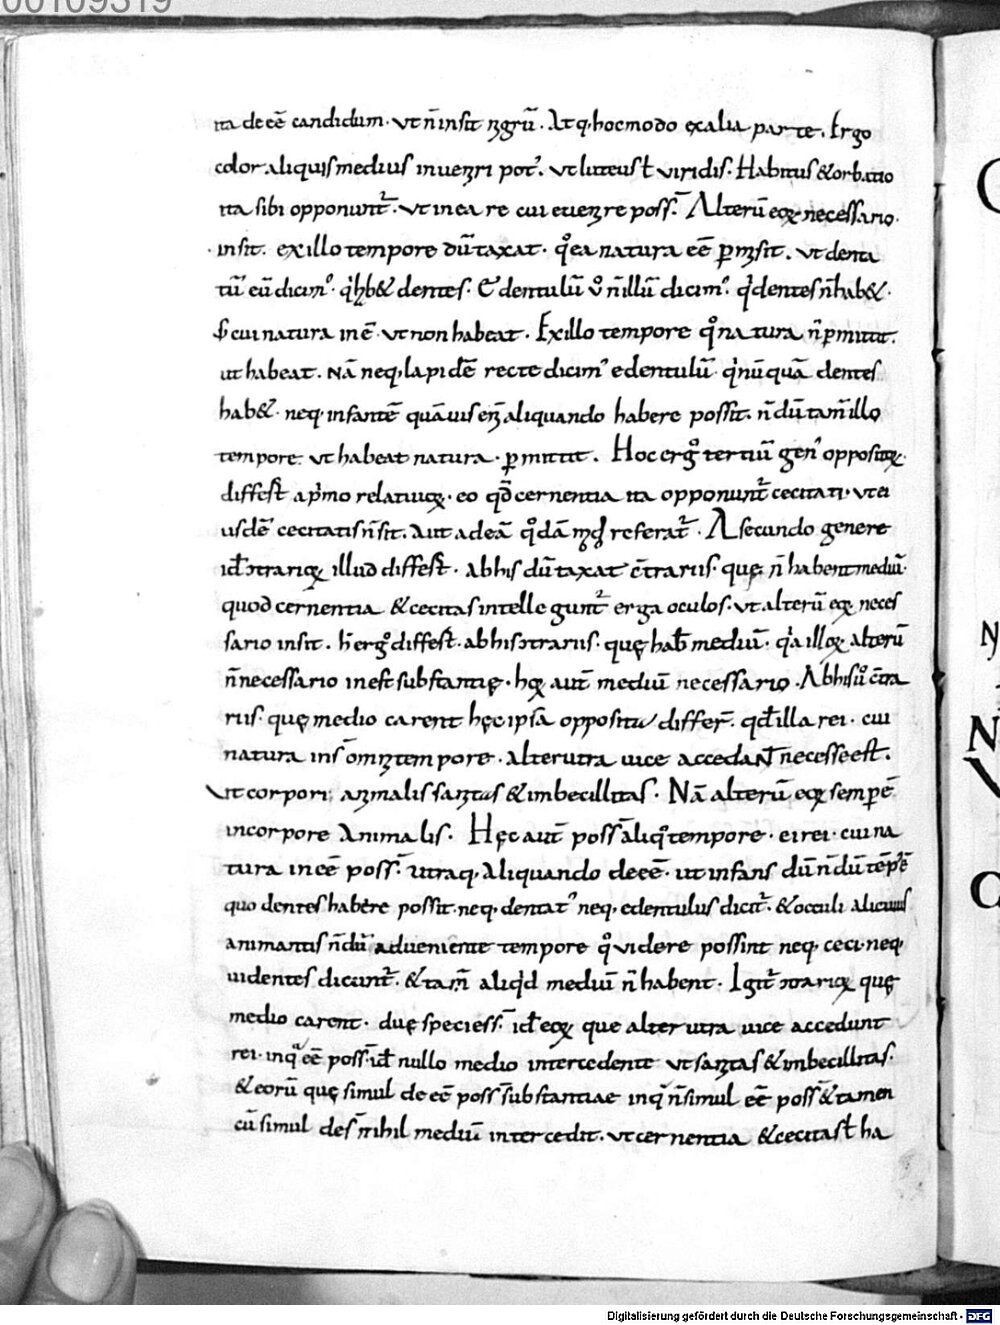 00109319
ita deeē candidum. vt n̄ insit nigrū. Atq; hocmodo ex alia parte. Ergo
color aliquis medius inueniri pot̄. vt luteus ł viridis. Habitus & orbatio
ita sibi opponunt̄. vt in ea re cui euenire poss̄. Alterū eoꝝ necessario.
insit. ex illo tempore dūtaxat. qͦ ea natura eē ꝑmisit. vt denta
tū eū dicimꝰ. qͥ hab& dentes. & dentulū ů n̄ illū dicimꝰ. qͥ dentes n̄ hab&.
s; cui natura inē. vt non habeat. Ex illo tempore qͦ natura n̄ ꝑmittit.
ut habeat. Nā neq; lapidē recte dicimꝰ edentulū. qͥ nūquā dentes
hab&. neq; infantē quāuis eni aliquando habere possit. n̄dū tam̄ illo
tempore. vt habeat natura. ꝑmittit. Hoc ergͦ tertiū genꝰ oppositoꝝ
differt̄ a pͥmo relatiuoꝝ. eo qd̄ cernentia ita opponunt̄ cecitati. vt ei
usdē cecitatis n̄ sit. Aut ad eā qͦdā mͦ referat̄. A secundo genere
id ł ɔtrarioꝝ illud differt̄. abhis dūtaxat c̄trariis. quę n̄ habent mediū.
quod cernentia & cecitas intelleguntᷣ erga oculos. vt alterū eoꝝ neces
sario insit. h̄ ergͦ differt̄. abhis ɔtrariis. quę hab̄t mediū. qͥa illoꝝ alterū
n̄ necessario inest substantię. hoꝝ aut̄ mediū necessario. Abhis ůͦ c̄tra
riis. quę medio carent hęc ipsa opposita differt̄. qd̄ illa rei. cui
natura ins̄ omni tempore. alterutra uice accedant necesse est.
Vt corpori animalis sanitas & imbecillitas. Nā alterū eoꝝ semp ē
incorpore Animalis. Hęc aut̄ poss̄ aliqͦ tempore. ei rei. cui na
tura in eē poss̄. utraq; Aliquando deeē. ut infans dū n̄dū tēpꝰ ē
quo dentes habere possit. neq; dentatꝰ neq; edentulus dicit̄. & occuli alicuius
animantis n̄dū adueniente tempore qͦ videre possint neq; ceci. neq;
uidentes dicunt̄. & tam̄ aliqͥd mediū n̄ habent. Igit̄ ɔtrarioꝝ quę
medio carent. duę species s̄. id ł eoꝝ que alter utra uice accedunt
rei. inqͣ eē poss̄. id ł nullo medio intercedente vt sanitas & imbecillitas.
& eorū quę simul deeē poss̄ substantiae inqͣ n̄ simul eē poss̄ & tamen
cū simul des̄ nihil mediū intercedit. vt cernentia & cecitas ł ha
Digitalisierung gefördert durch die Deutsche Forschungsgemeinschaft - DFG